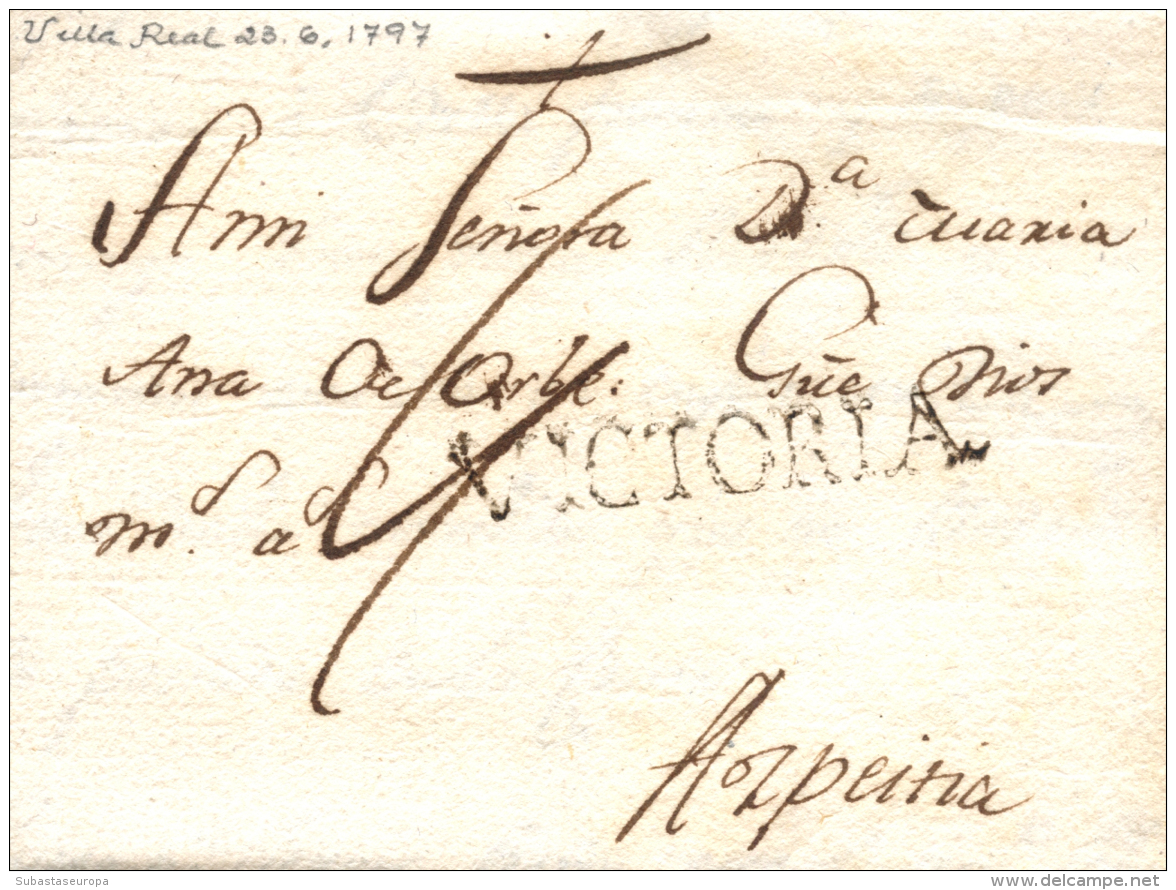 Villa Real 23.6.1797
A mi Señora D.ª Maria
Ana de Orbe: Gûe Dios
m.s a.s
4
VICTORIA
Aozpeitia
Subastaseuropa
delcampe.net